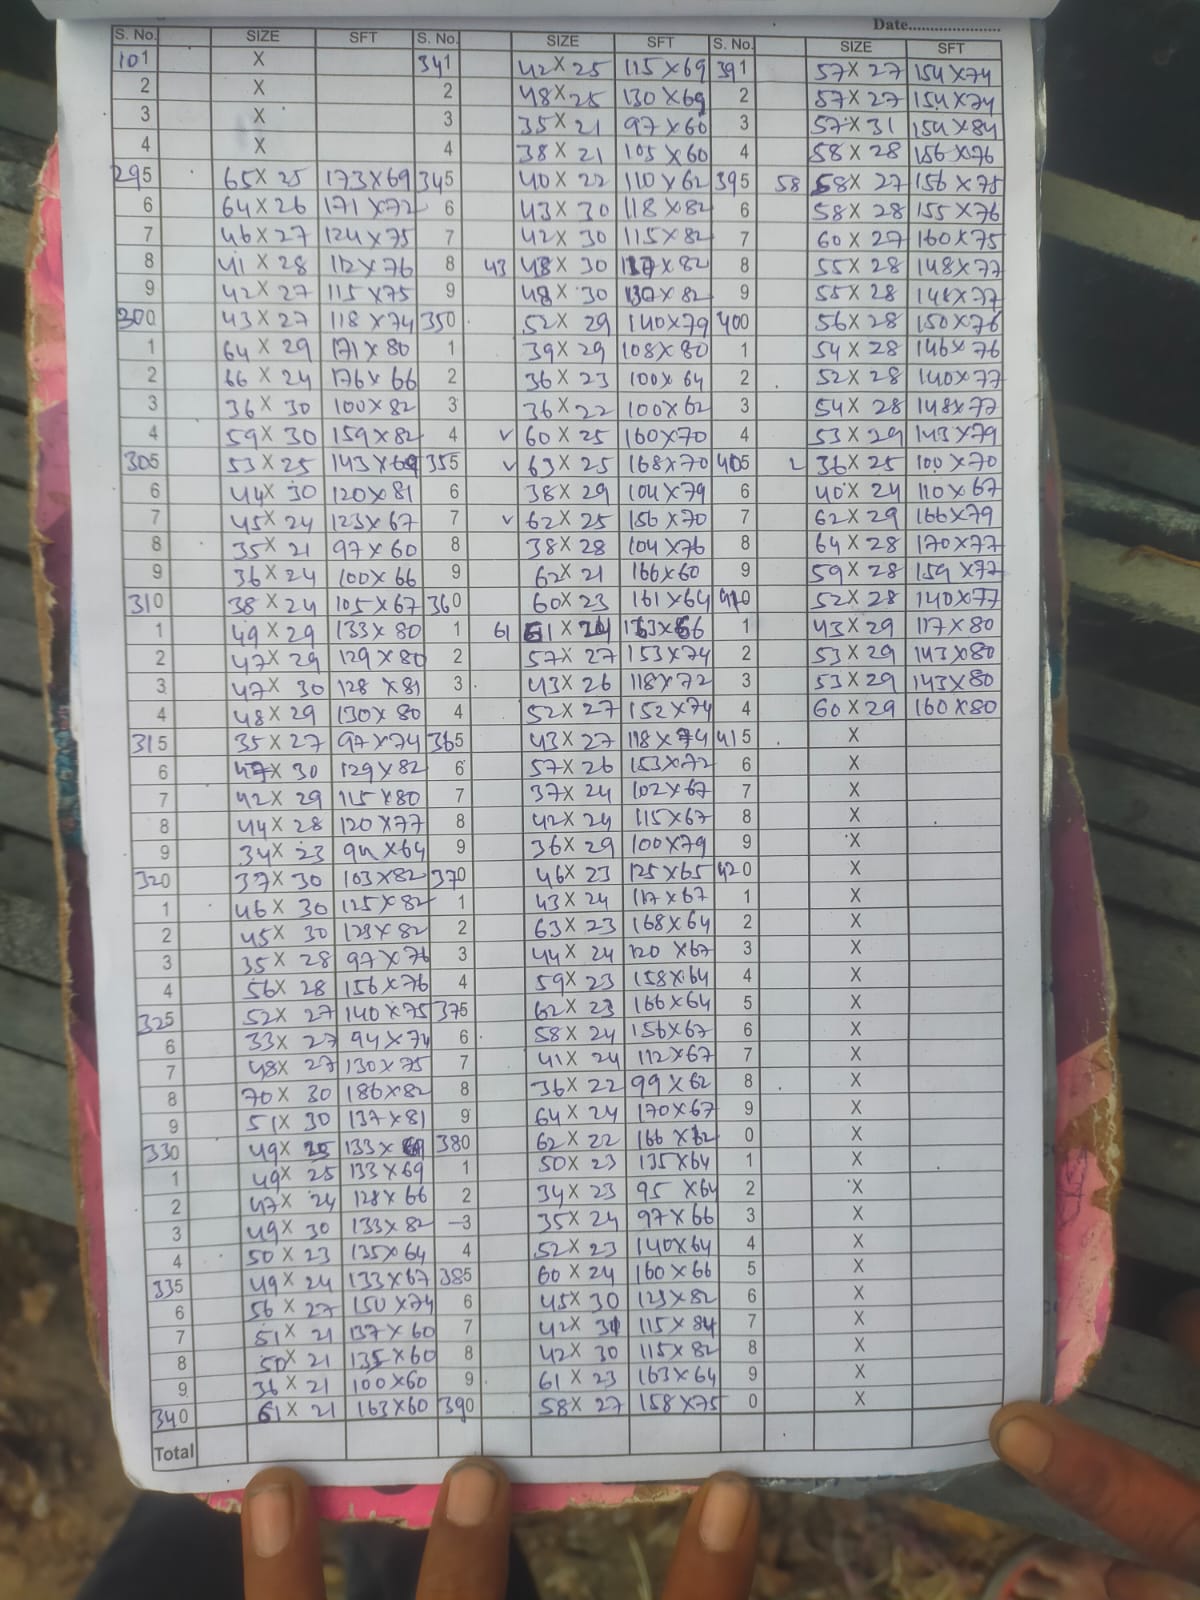 Date.....................
S. No. SIZE SFT S. No. SIZE SFT S. No. SIZE SFT
101 X 341 42 X 25 115 X 69 391 57 X 27 154 X 74
2 X 2 48 X 25 130 X 69 2 57 X 27 154 X 74
3 X 3 35 X 21 97 X 60 3 57 X 31 154 X 84
4 X 4 38 X 21 105 X 60 4 58 X 28 156 X 76
295 65 X 25 173 X 69 345 40 X 22 110 X 62 395 58 58 X 27 156 X 75
6 64 X 26 171 X 72 6 43 X 30 118 X 82 6 58 X 28 155 X 76
7 46 X 27 124 X 75 7 42 X 30 115 X 82 7 60 X 27 160 X 75
8 41 X 28 112 X 76 8 43 48 X 30 X 82 8 55 X 28 148 X 77
9 42 X 27 115 X 75 9 48 X 30 130 X 82 9 55 X 28 148 X 77
300 43 X 27 118 X 74 350 52 X 29 140 X 79 400 56 X 28 150 X 76
1 64 X 29 171 X 80 1 39 X 29 108 X 80 1 54 X 28 146 X 76
2 66 X 24 176 X 66 2 36 X 23 100 X 64 2 52 X 28 140 X 77
3 36 X 30 100 X 82 3 36 X 22 100 X 62 3 54 X 28 148 X 77
4 59 X 30 159 X 82 4 ✓ 60 X 25 160 X 70 4 53 X 29 143 X 79
305 53 X 25 143 X 69 355 ✓ 63 X 25 168 X 70 405 ✓ 36 X 25 100 X 70
6 44 X 30 120 X 81 6 38 X 29 104 X 79 6 40 X 24 110 X 67
7 45 X 24 123 X 67 7 ✓ 62 X 25 156 X 70 7 62 X 29 166 X 79
8 35 X 21 97 X 60 8 38 X 28 104 X 76 8 64 X 28 170 X 77
9 36 X 24 100 X 66 9 62 X 21 166 X 60 9 59 X 28 159 X 77
310 38 X 24 105 X 67 360 60 X 23 161 X 64 410 52 X 28 140 X 77
1 49 X 29 133 X 80 1 61 61 X 24 163 X 66 1 43 X 29 117 X 80
2 47 X 29 129 X 80 2 57 X 27 153 X 74 2 53 X 29 143 X 80
3 47 X 30 128 X 81 3 43 X 26 118 X 72 3 53 X 29 143 X 80
4 48 X 29 130 X 80 4 52 X 27 152 X 74 4 60 X 29 160 X 80
315 35 X 27 97 X 74 365 43 X 27 118 X 74 415 X
6 47 X 30 129 X 82 6 57 X 26 153 X 72 6 X
7 42 X 29 115 X 80 7 37 X 24 102 X 67 7 X
8 44 X 28 120 X 77 8 42 X 24 115 X 67 8 X
9 34 X 23 94 X 64 9 36 X 29 100 X 79 9 X
320 37 X 30 103 X 82 370 46 X 23 125 X 65 420 X
1 46 X 30 125 X 82 1 43 X 24 117 X 67 1 X
2 45 X 30 123 X 82 2 63 X 23 168 X 64 2 X
3 35 X 28 97 X 76 3 44 X 24 120 X 67 3 X
4 56 X 28 156 X 76 4 59 X 23 158 X 64 4 X
325 52 X 27 140 X 75 375 62 X 23 166 X 64 5 X
6 33 X 27 94 X 74 6 58 X 24 156 X 67 6 X
7 48 X 27 130 X 75 7 41 X 24 112 X 67 7 X
8 70 X 30 186 X 82 8 36 X 22 99 X 62 8 X
9 51 X 30 137 X 81 9 64 X 24 170 X 67 9 X
330 49 X 25 133 X 69 380 62 X 22 166 X 62 0 X
1 49 X 25 133 X 69 1 50 X 23 135 X 64 1 X
2 47 X 24 128 X 66 2 34 X 23 95 X 64 2 X
3 49 X 30 133 X 82 3 35 X 24 97 X 66 3 X
4 50 X 23 135 X 64 4 52 X 23 140 X 64 4 X
335 49 X 24 133 X 67 385 60 X 24 160 X 66 5 X
6 56 X 27 150 X 74 6 45 X 30 123 X 82 6 X
7 51 X 21 137 X 60 7 42 X 31 115 X 84 7 X
8 50 X 21 135 X 60 8 42 X 30 115 X 82 8 X
9 36 X 21 100 X 60 9 61 X 23 163 X 64 9 X
340 61 X 21 163 X 60 390 58 X 27 158 X 75 0 X
Total